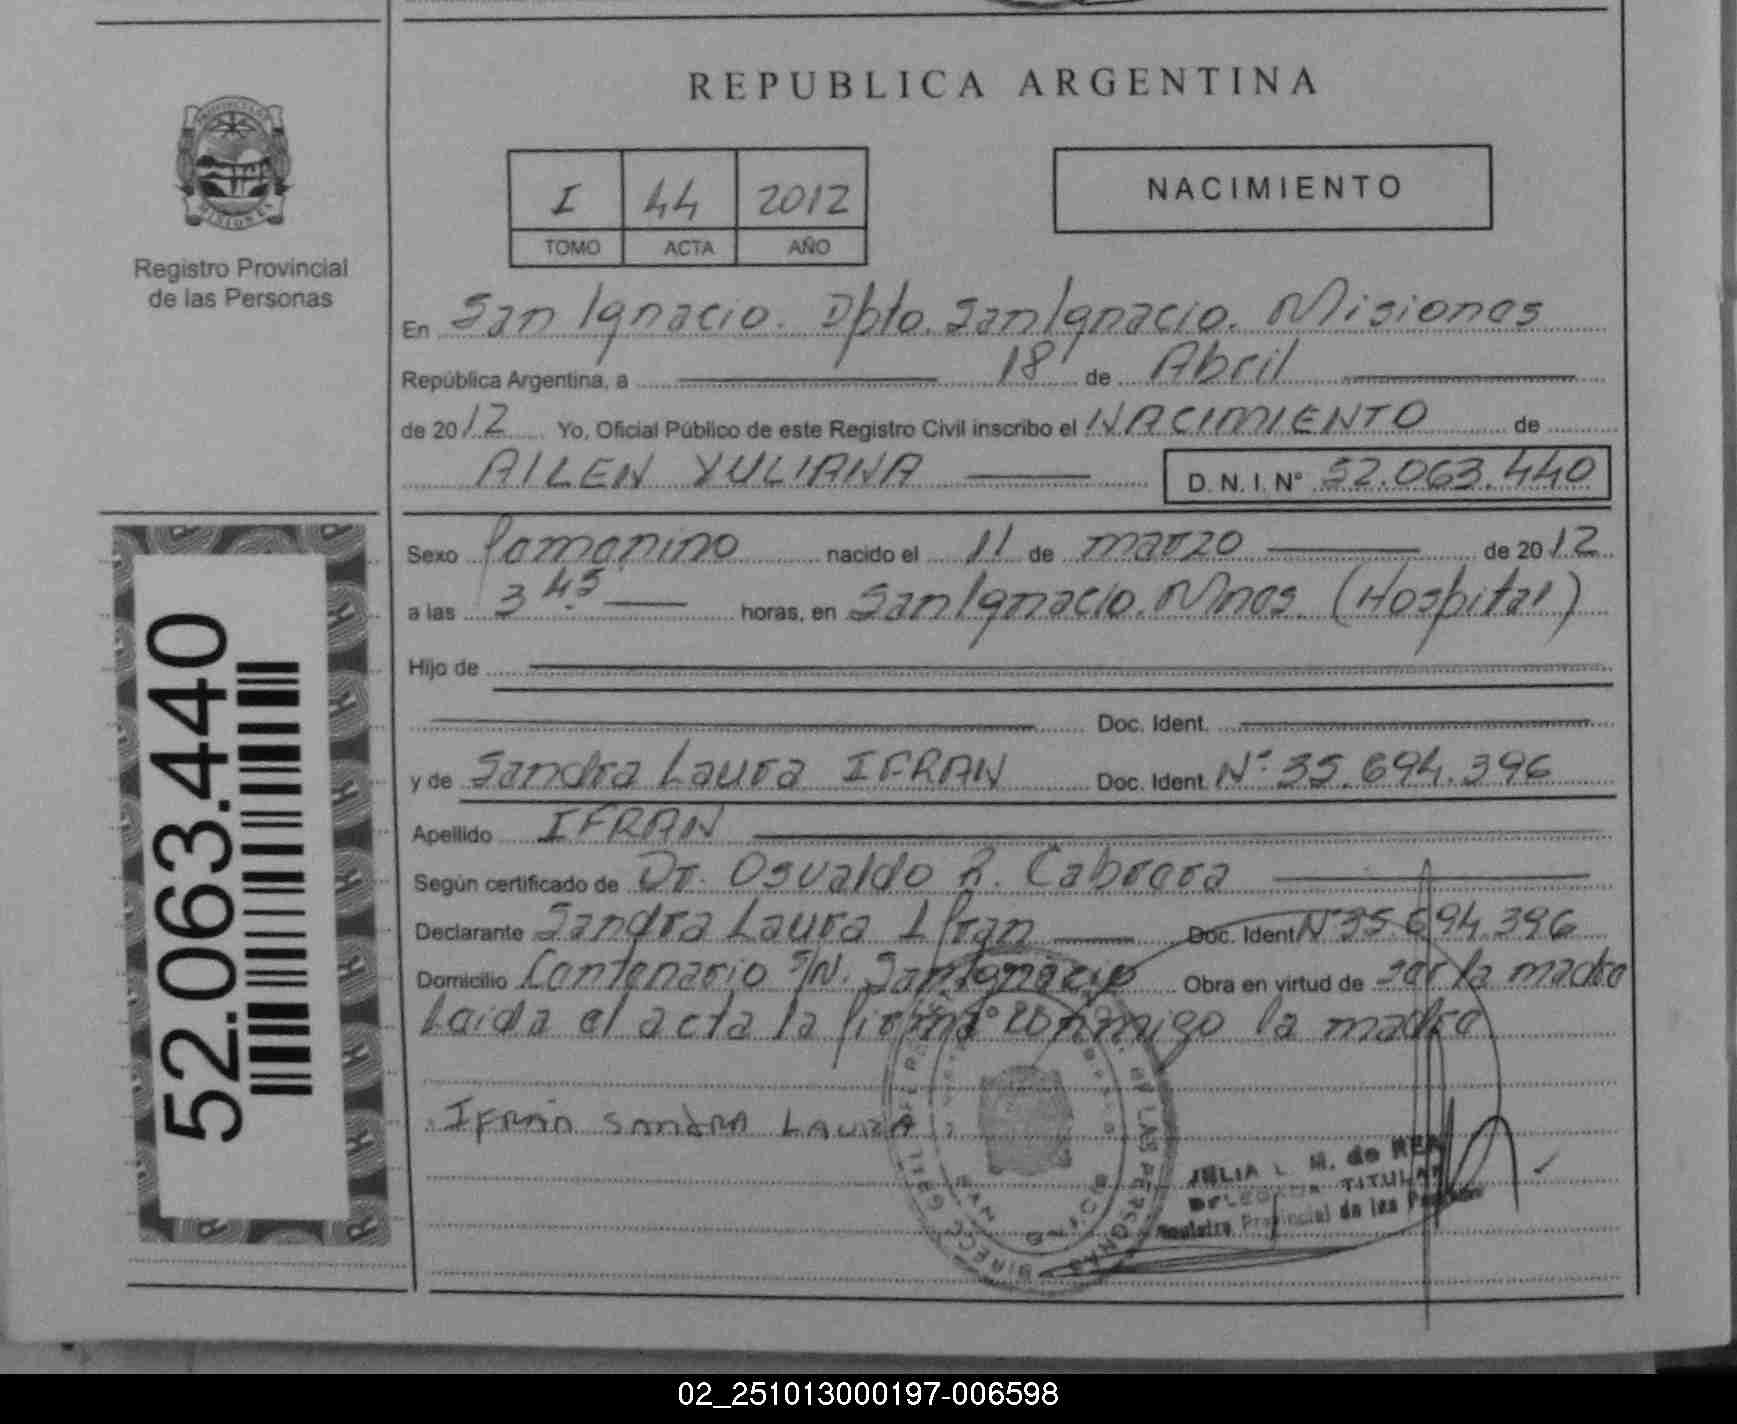 REPUBLICA ARGENTINA
PROVINCIA DE MISIONES
Registro Provincial
de las Personas
I 44 2012
TOMO ACTA AÑO
NACIMIENTO
En San Ignacio. Dpto. San Ignacio. Misiones
República Argentina, a 18 de Abril
de 2012 Yo, Oficial Público de este Registro Civil inscribo el NACIMIENTO de
AILEN YULIANA D. N. I. N° 52.063.440
Sexo femenino nacido el 11 de marzo de 2012
a las 3 45 horas, en San Ignacio. Mnes. (Hospital)
Hijo de
Doc. Ident.
y de Sandra Laura IFRAN Doc. Ident. N° 35.694.396
Apellido IFRAN
Según certificado de Dr. Osvaldo R. Cabrera
Declarante Sandra Laura Ifran Doc. Ident N° 35.694.396
Domicilio Centenario S/N. San Ignacio Obra en virtud de ser la madre
Leida el acta la firma conmigo la madre
IFRAN SANDRA LAURA
JULIA L. M. de REA
DELEGADA TITULAR
Registro Provincial de las Personas
52.063.440
02_251013000197-006598